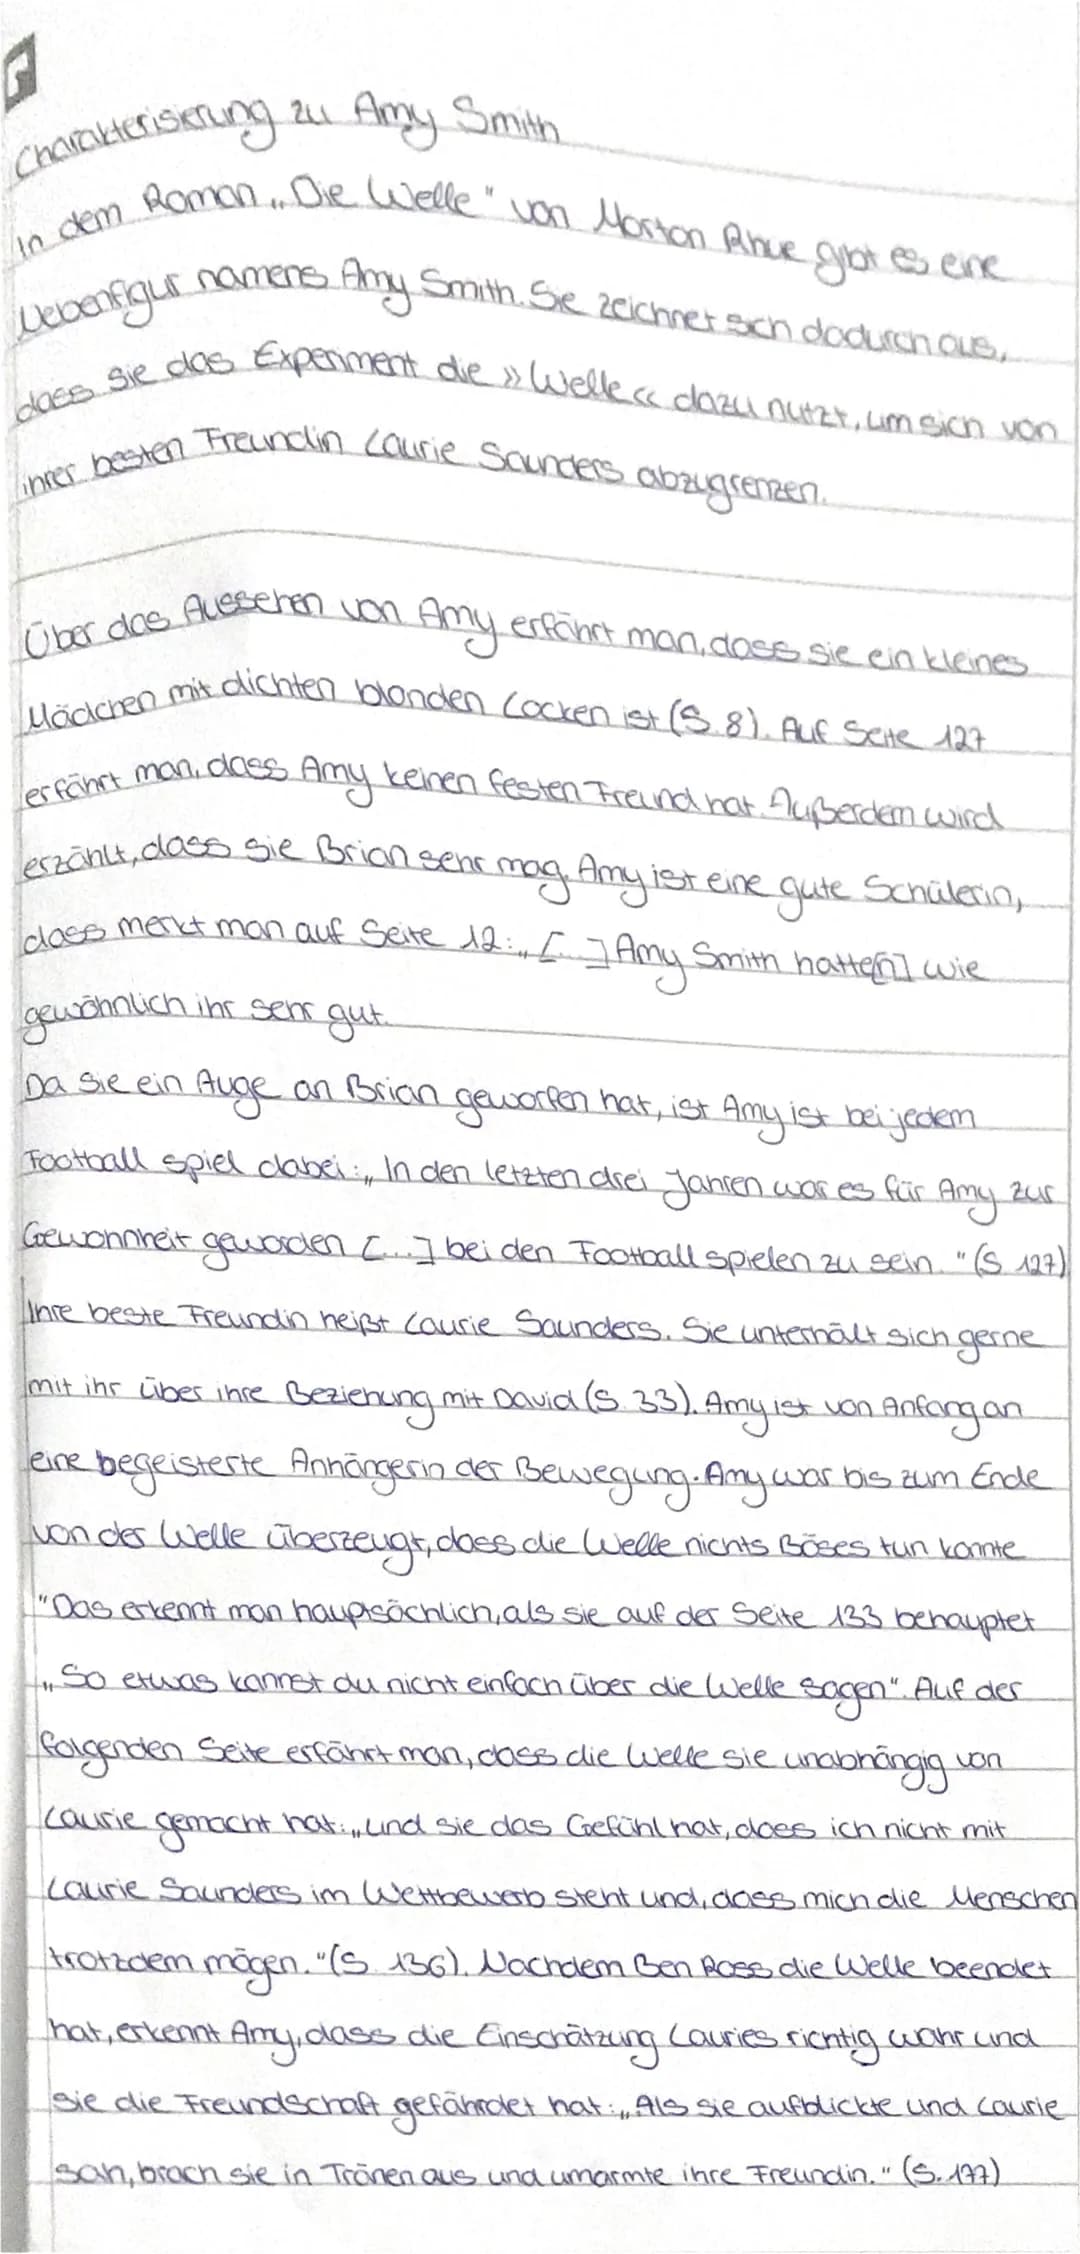 Charakterisierung zu Amy Smith
In dem Roman „Die Welle" von Morton Rhue gibt es eine
Nebenfigur namens Amy Smith. Sie zeichnet sich dadurch aus,
dass sie das Experiment die »Welle« dazu nutzt, um sich von
ihrer besten Freundin Laurie Saunders abzugrenzen.
Über das Aussehen von Amy erfährt man, dass sie ein kleines
Mädchen mit dichten blonden Locken ist (S. 8). Auf Seite 127
erfährt man, dass Amy keinen festen Freund hat. Außerdem wird
erzählt, dass sie Brian sehr mag. Amy ist eine gute Schülerin,
dass merkt man auf Seite 12: „[...] Amy Smith hatte[n] wie
gewöhnlich ihr sehr gut.
Da sie ein Auge an Brian geworfen hat, ist Amy ist bei jedem
Football spiel dabei: „In den letzten drei Jahren war es für Amy zur
Gewohnheit geworden [...] bei den Football spielen zu sein. "(S 127)
Ihre beste Freundin heißt Laurie Saunders. Sie unterhält sich gerne
mit ihr über ihre Beziehung mit David (S. 33). Amy ist von Anfang an
eine begeisterte Anhängerin der Bewegung. Amy war bis zum Ende
von der Welle überzeugt, dass die Welle nichts Böses tun konnte
"Das erkennt man hauptsächlich, als sie auf der Seite 133 behauptet
„So etwas kannst du nicht einfach über die Welle sagen". Auf der
folgenden Seite erfährt man, dass die Welle sie unabhängig von
Laurie gemacht hat: „und sie das Gefühl hat, dass ich nicht mit
Laurie Saunders im Wettbewerb steht und, dass mich die Menschen
trotzdem mögen. "(S. 136). Nachdem Ben Ross die Welle beendet
hat, erkennt Amy, dass die Einschätzung Lauries richtig wahr und
sie die Freundschaft gefährdet hat: „Als sie aufblickte und Laurie
sah, brach sie in Tränen aus und umarmte ihre Freundin." (S. 177)